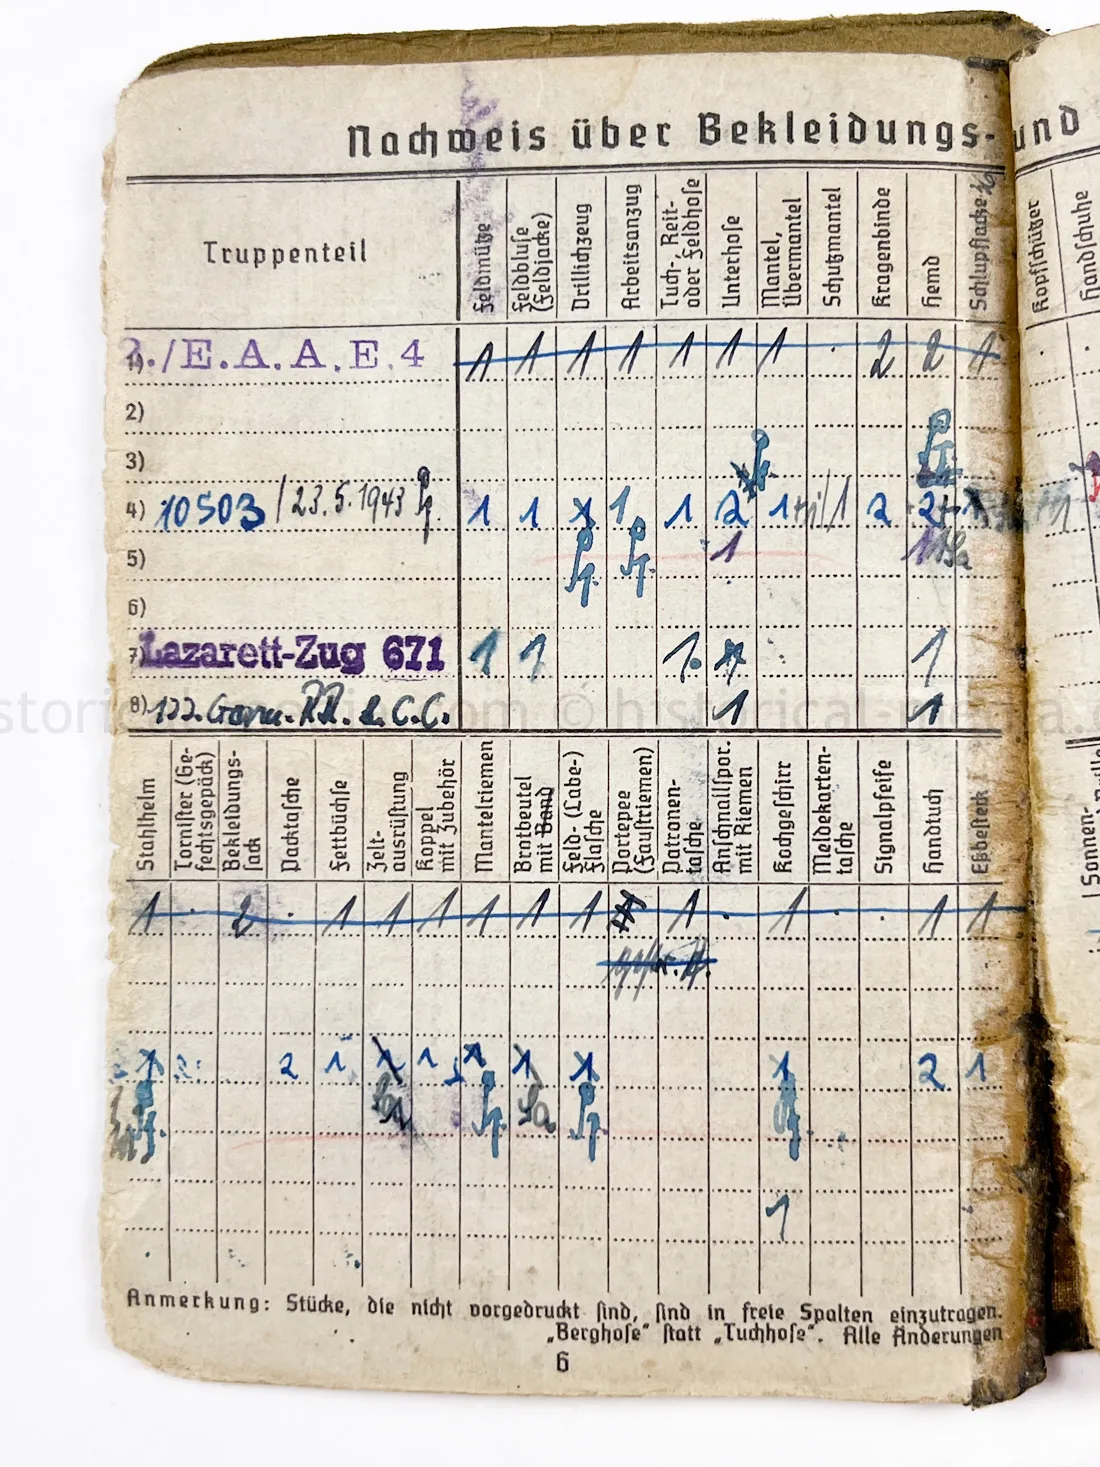 Nachweis über Bekleidungs- und
Truppenteil
Feldmütze
Feldbluse (Feldjacke)
Drillichzeug
Arbeitsanzug
Tuch-, Reit- oder Feldhose
Unterhose
Mantel, Übermantel
Schutzmantel
Kragenbinde
Hemd
Schlupfjacke
Kopfschützer
Handschuhe
1) 2./E.A.A.E.4 1 1 1 1 1 1 1 . 2 2 1 . .
2)
3)
4) 10503 / 23.5.1943 1 1 1 1 1 2 1 1 2 2
5) 1 1
6)
7) Lazarett-Zug 671 1 1 1. 1
8) 122. C.C. 1 1
Stahlhelm
Tornister (Gefechtsgepäck)
Bekleidungssack
Packtasche
Fettbüchse
Zeltausrüstung
Koppel mit Zubehör
Mantelriemen
Brotbeutel mit Band
Feld- (Labe-) Flasche
Portepee (Faustriemen)
Patronentasche
Anschnallspor. mit Riemen
Kochgeschirr
Meldekartentasche
Signalpfeife
Handtuch
Eßbesteck
Sonnen-
1 . 2 . 1 1 1 1 1 1 1 . 1 . . 1 1
1 2 2 1 1 1 1 1 1 1 2 1
1
Anmerkung: Stücke, die nicht vorgedruckt sind, sind in freie Spalten einzutragen.
„Berghose“ statt „Tuchhose“. Alle Änderungen
6
historical-media.com © historical-media